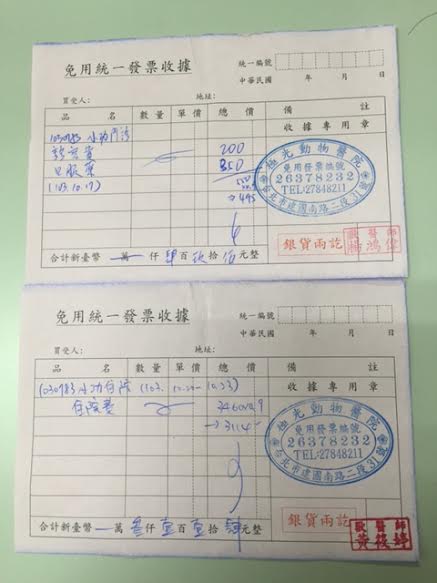 免用統一發票收據
統一編號
中華民國 年 月 日
買受人: 地址:
品名 數量 單價 總價 備註
收據專用章
1030983 小功門診
診察費 200
口服藥 350
(103.10.17) 550
→495
極光動物醫院
免用發票編號
26378232
TEL:27848211
台北市建國南路二段31號
銀貨兩訖
獸醫師
楊鴻偉
合計新臺幣 萬 仟 肆 百 玖 拾 伍 元整
免用統一發票收據
統一編號
中華民國 年 月 日
買受人: 地址:
品名 數量 單價 總價 備註
收據專用章
1030983 小功住院 (103. 10.20-10.23)
住院費 3460x0.9
→3114
極光動物醫院
免用發票編號
26378232
TEL:27848211
台北市建國南路二段31號
銀貨兩訖
獸醫師
合計新臺幣 萬 叁 仟 壹 百 壹 拾 肆 元整